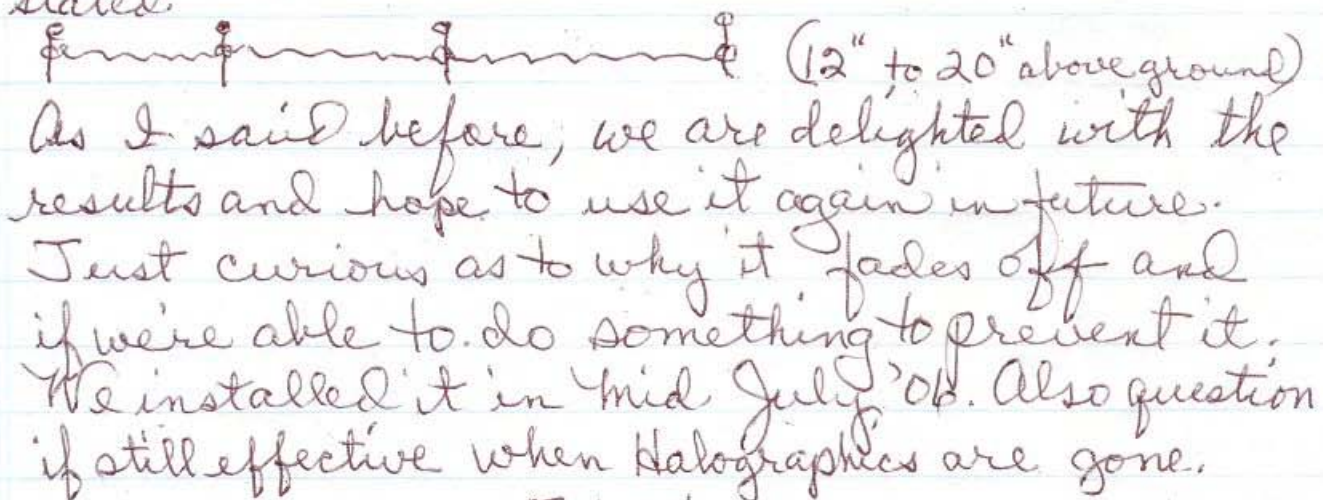 stated.
(12" to 20" above ground)
As I said before, we are delighted with the
results and hope to use it again in future.
Just curious as to why it fades off and
if we're able to do something to prevent it.
We installed it in Mid July '06. Also question
if still effective when Halographics are gone.